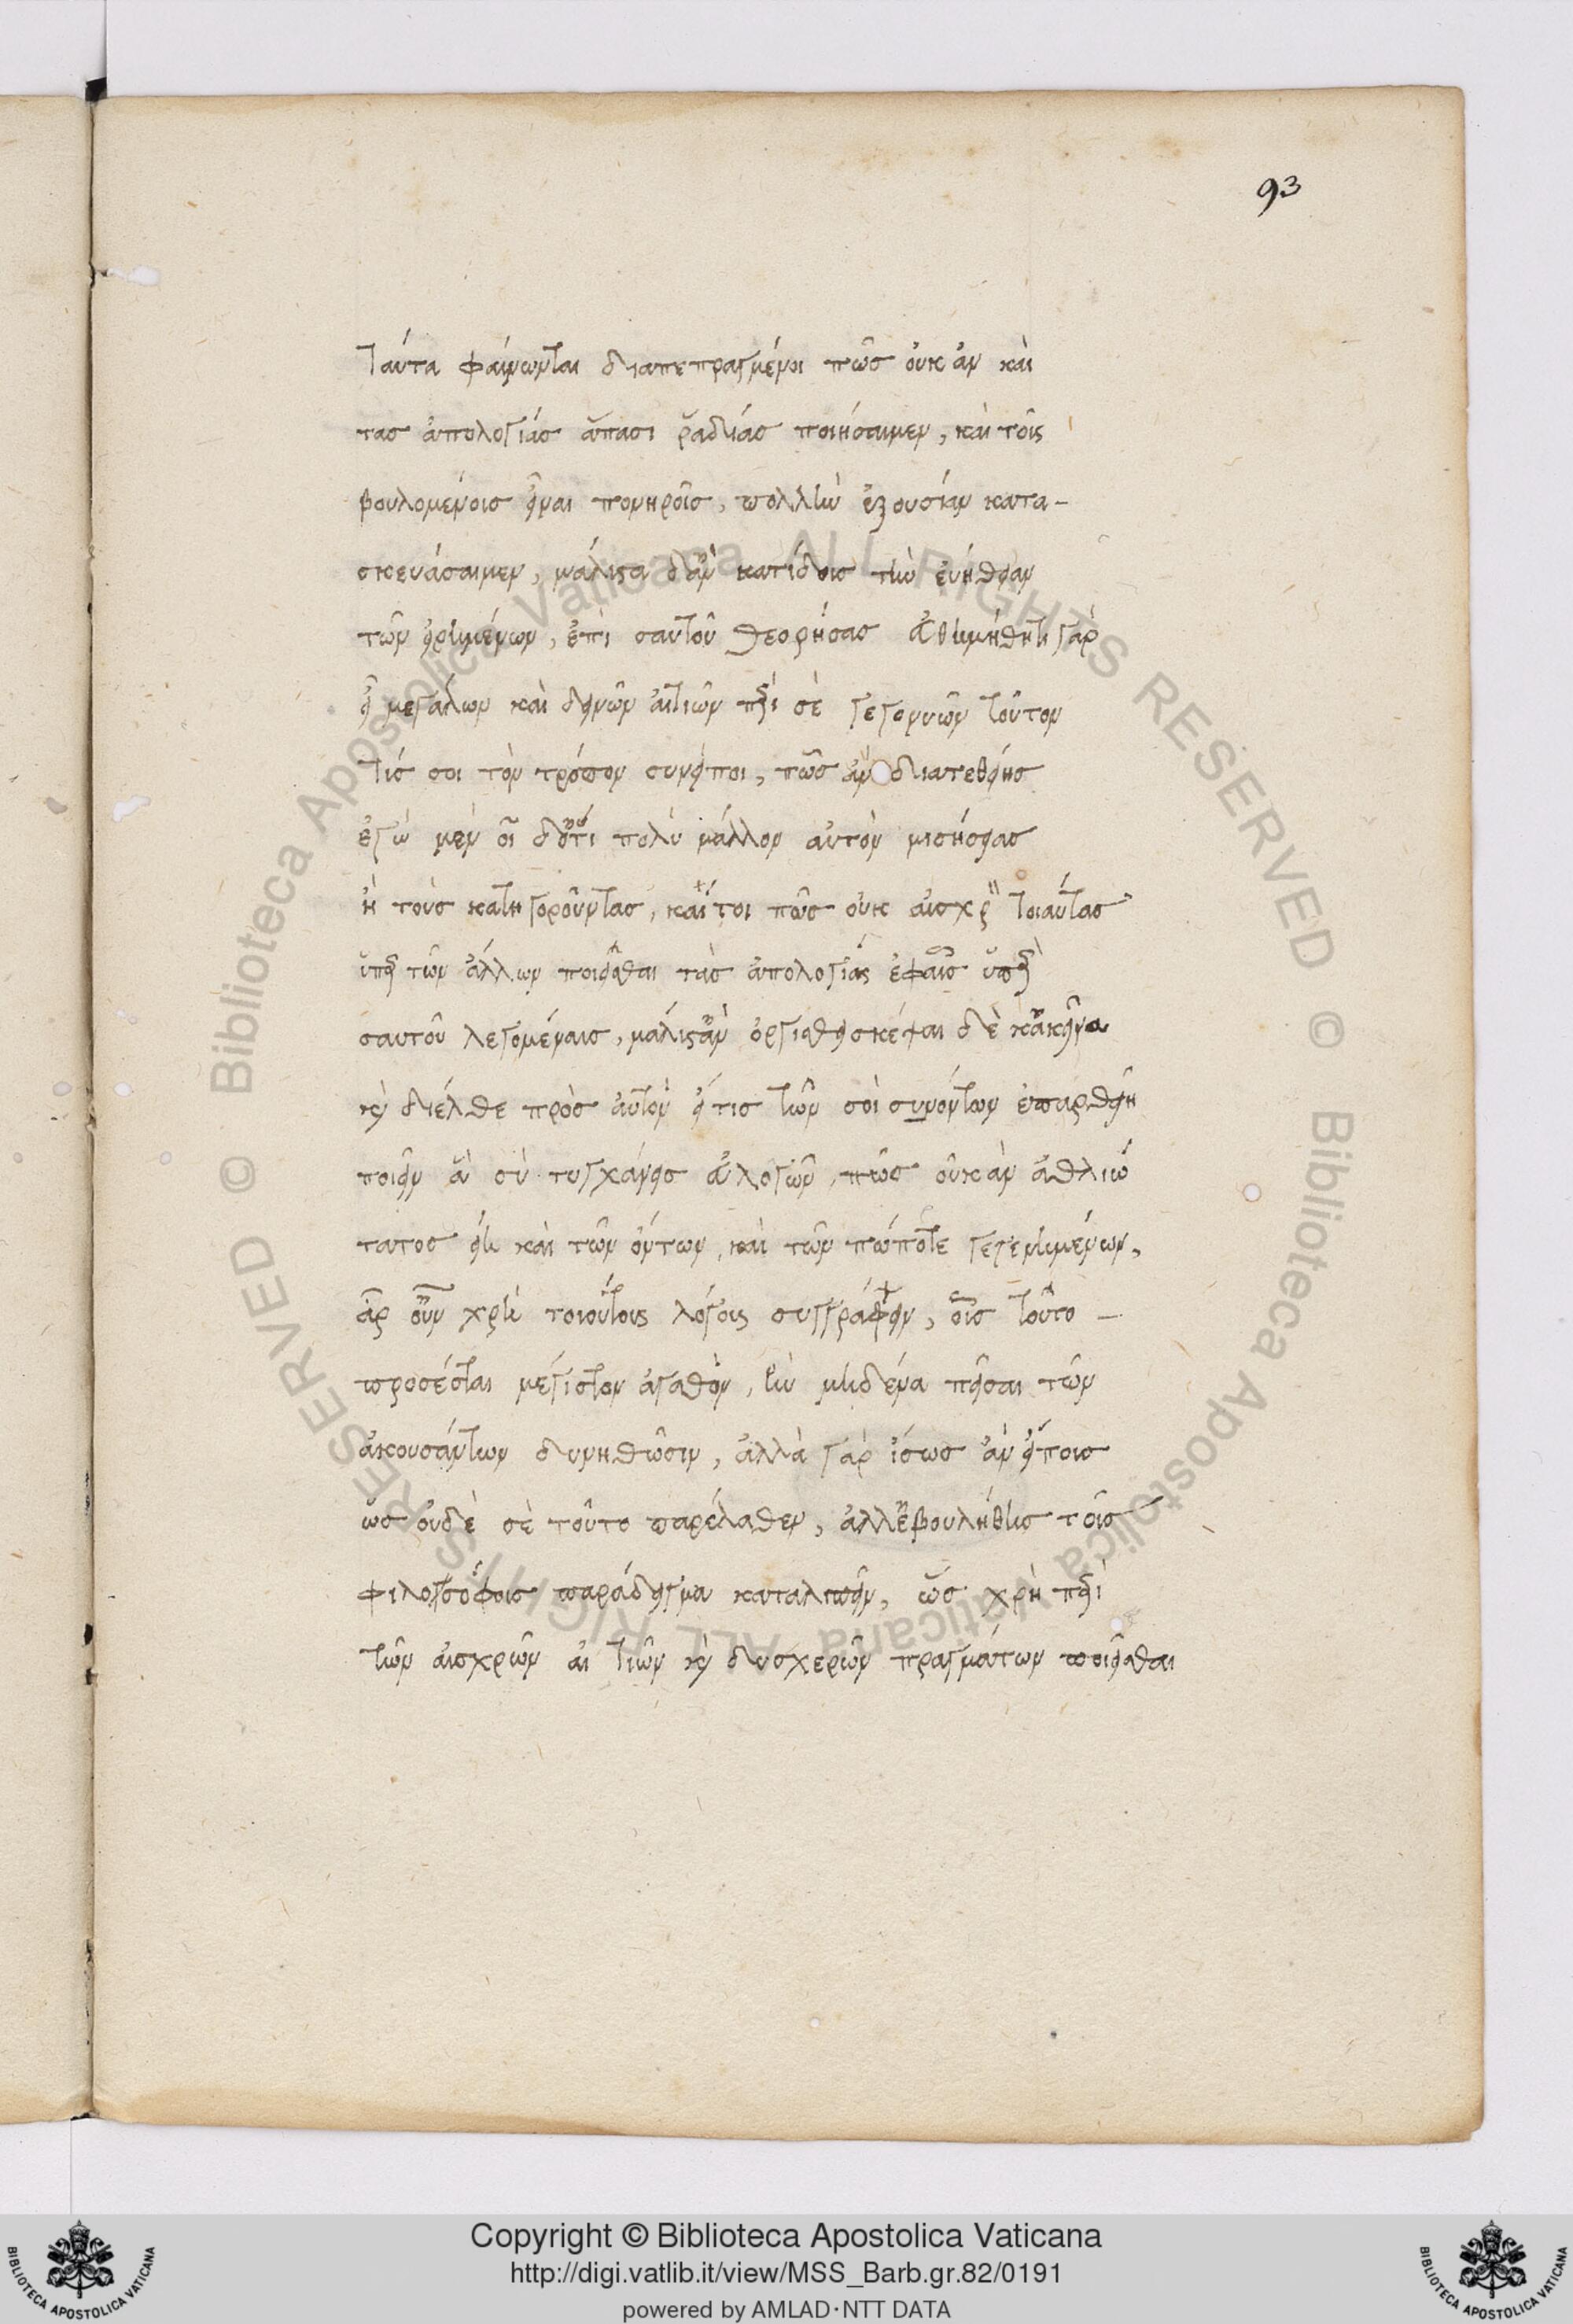 93
ταύτα φαίνωνται διαπεπραγμένοι πῶσ ὀυκ ἀν καὶ
τασ ἀπολογιάσ ἅπασι ῥαδιάσ ποιήσαιμεν, καὶ τοῖς
βουλομένοισ εἶναι πονηροῖσ, πολλὴν ἐξουσίαν κατα-
σκευάσαιμεν, μάλιστα δ' ἂν κατίδοισ τὴν ἐυήθειαν
τῶν εἰρημένων, ἐπὶ σαυτοῦ θεορήσασ ἐνθυμήθητι γὰρ
εἰ μεγάλων καὶ δεινῶν αἰτιῶν περὶ σὲ γεγονυιῶν τοῦτον
τίσ σοι τὸν τρόπον συνείποι, πῶσ ἀν διατεθείησ
ἐγὼ μεν οἶ δ' ὅτι πολὺ μάλλον αὐτὸν μισήσειασ
ἢ τοὺσ κατηγορούντασ, καίτοι πῶσ οὐκ αἰσχρὸν τοιαύτασ
ὑπερ τῶν ἄλλων ποιεῖσθαι τὰσ ἀπολογίας ἐφ' αἷσ ὑπὲρ
σαυτοῦ λεγομέναισ, μάλιστ' ἂν ὀργισθείησ σκέψαι δὲ κἀκεῖνα
καὶ διέλθε πρὸσ αὐτὸν εἴ τισ τῶν σοὶ συνόντων ἐπαρθείη
ποιεῖν ἃ σὺ τυγχάνεισ ἐυλογῶν, πῶσ οὐκ ἀν ἀθλιώ
τατοσ εἴη καὶ τῶν ὄντων, καὶ τῶν πώποτε γεγενημένων,
ἆρ οὖν χρὴ τοιούτοις λόγοις συγγράφειν, οἷσ τοῦτο -
προσέσται μέγιστον ἀγαθὸν, ἢν μηδένα πεῖσαι τῶν
ἀκουσάντων δυνηθῶσιν, ἀλλὰ γὰρ ἴσωσ ἀν εἴποισ
ὡσ οὐδὲ σὲ τοῦτο παρέλαθεν, ἀλλ' ἐβουλήθησ τοῖσ
φιλοσόφοισ παράδειγμα καταλιπεῖν, ὡσ χρὴ περὶ
τῶν αἰσχρῶν αἰ τιῶν καὶ δυσχερῶν πραγμάτων ποιεῖσθαι
© Biblioteca Apostolica Vaticana ALL RIGHTS RESERVED
© Biblioteca Apostolica Vaticana ALL RIGHTS RESERVED
Copyright © Biblioteca Apostolica Vaticana
http://digi.vatlib.it/view/MSS_Barb.gr.82/0191
powered by AMLAD·NTT DATA
BIBLIOTECA APOSTOLICA VATICANA
BIBLIOTECA APOSTOLICA VATICANA